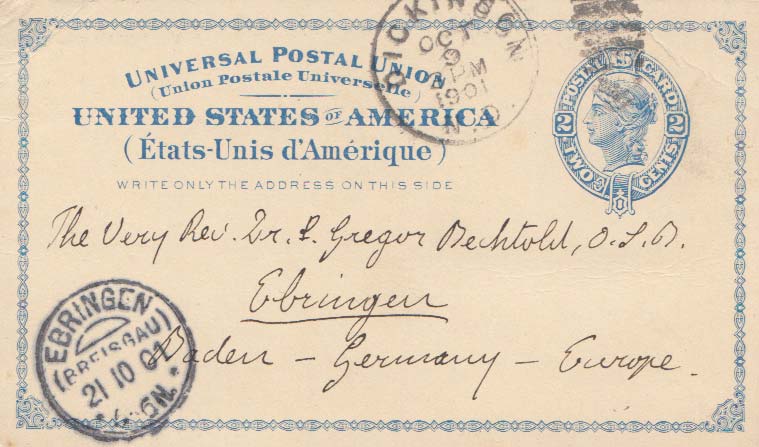 UNIVERSAL POSTAL UNION
(Union Postale Universelle)
UNITED STATES OF AMERICA
(États-Unis d'Amérique)
WRITE ONLY THE ADDRESS ON THIS SIDE
DICKINSON
OCT
9
PM
1901
N.D.
POSTAL CARD
U S
2 2
TWO CENTS
The Very Rev. Dr. P. Gregor Bechtold, O.S.B.
Ebringen
Baden – Germany – Europe.
EBRINGEN
(BREISGAU)
21 10 01
N.